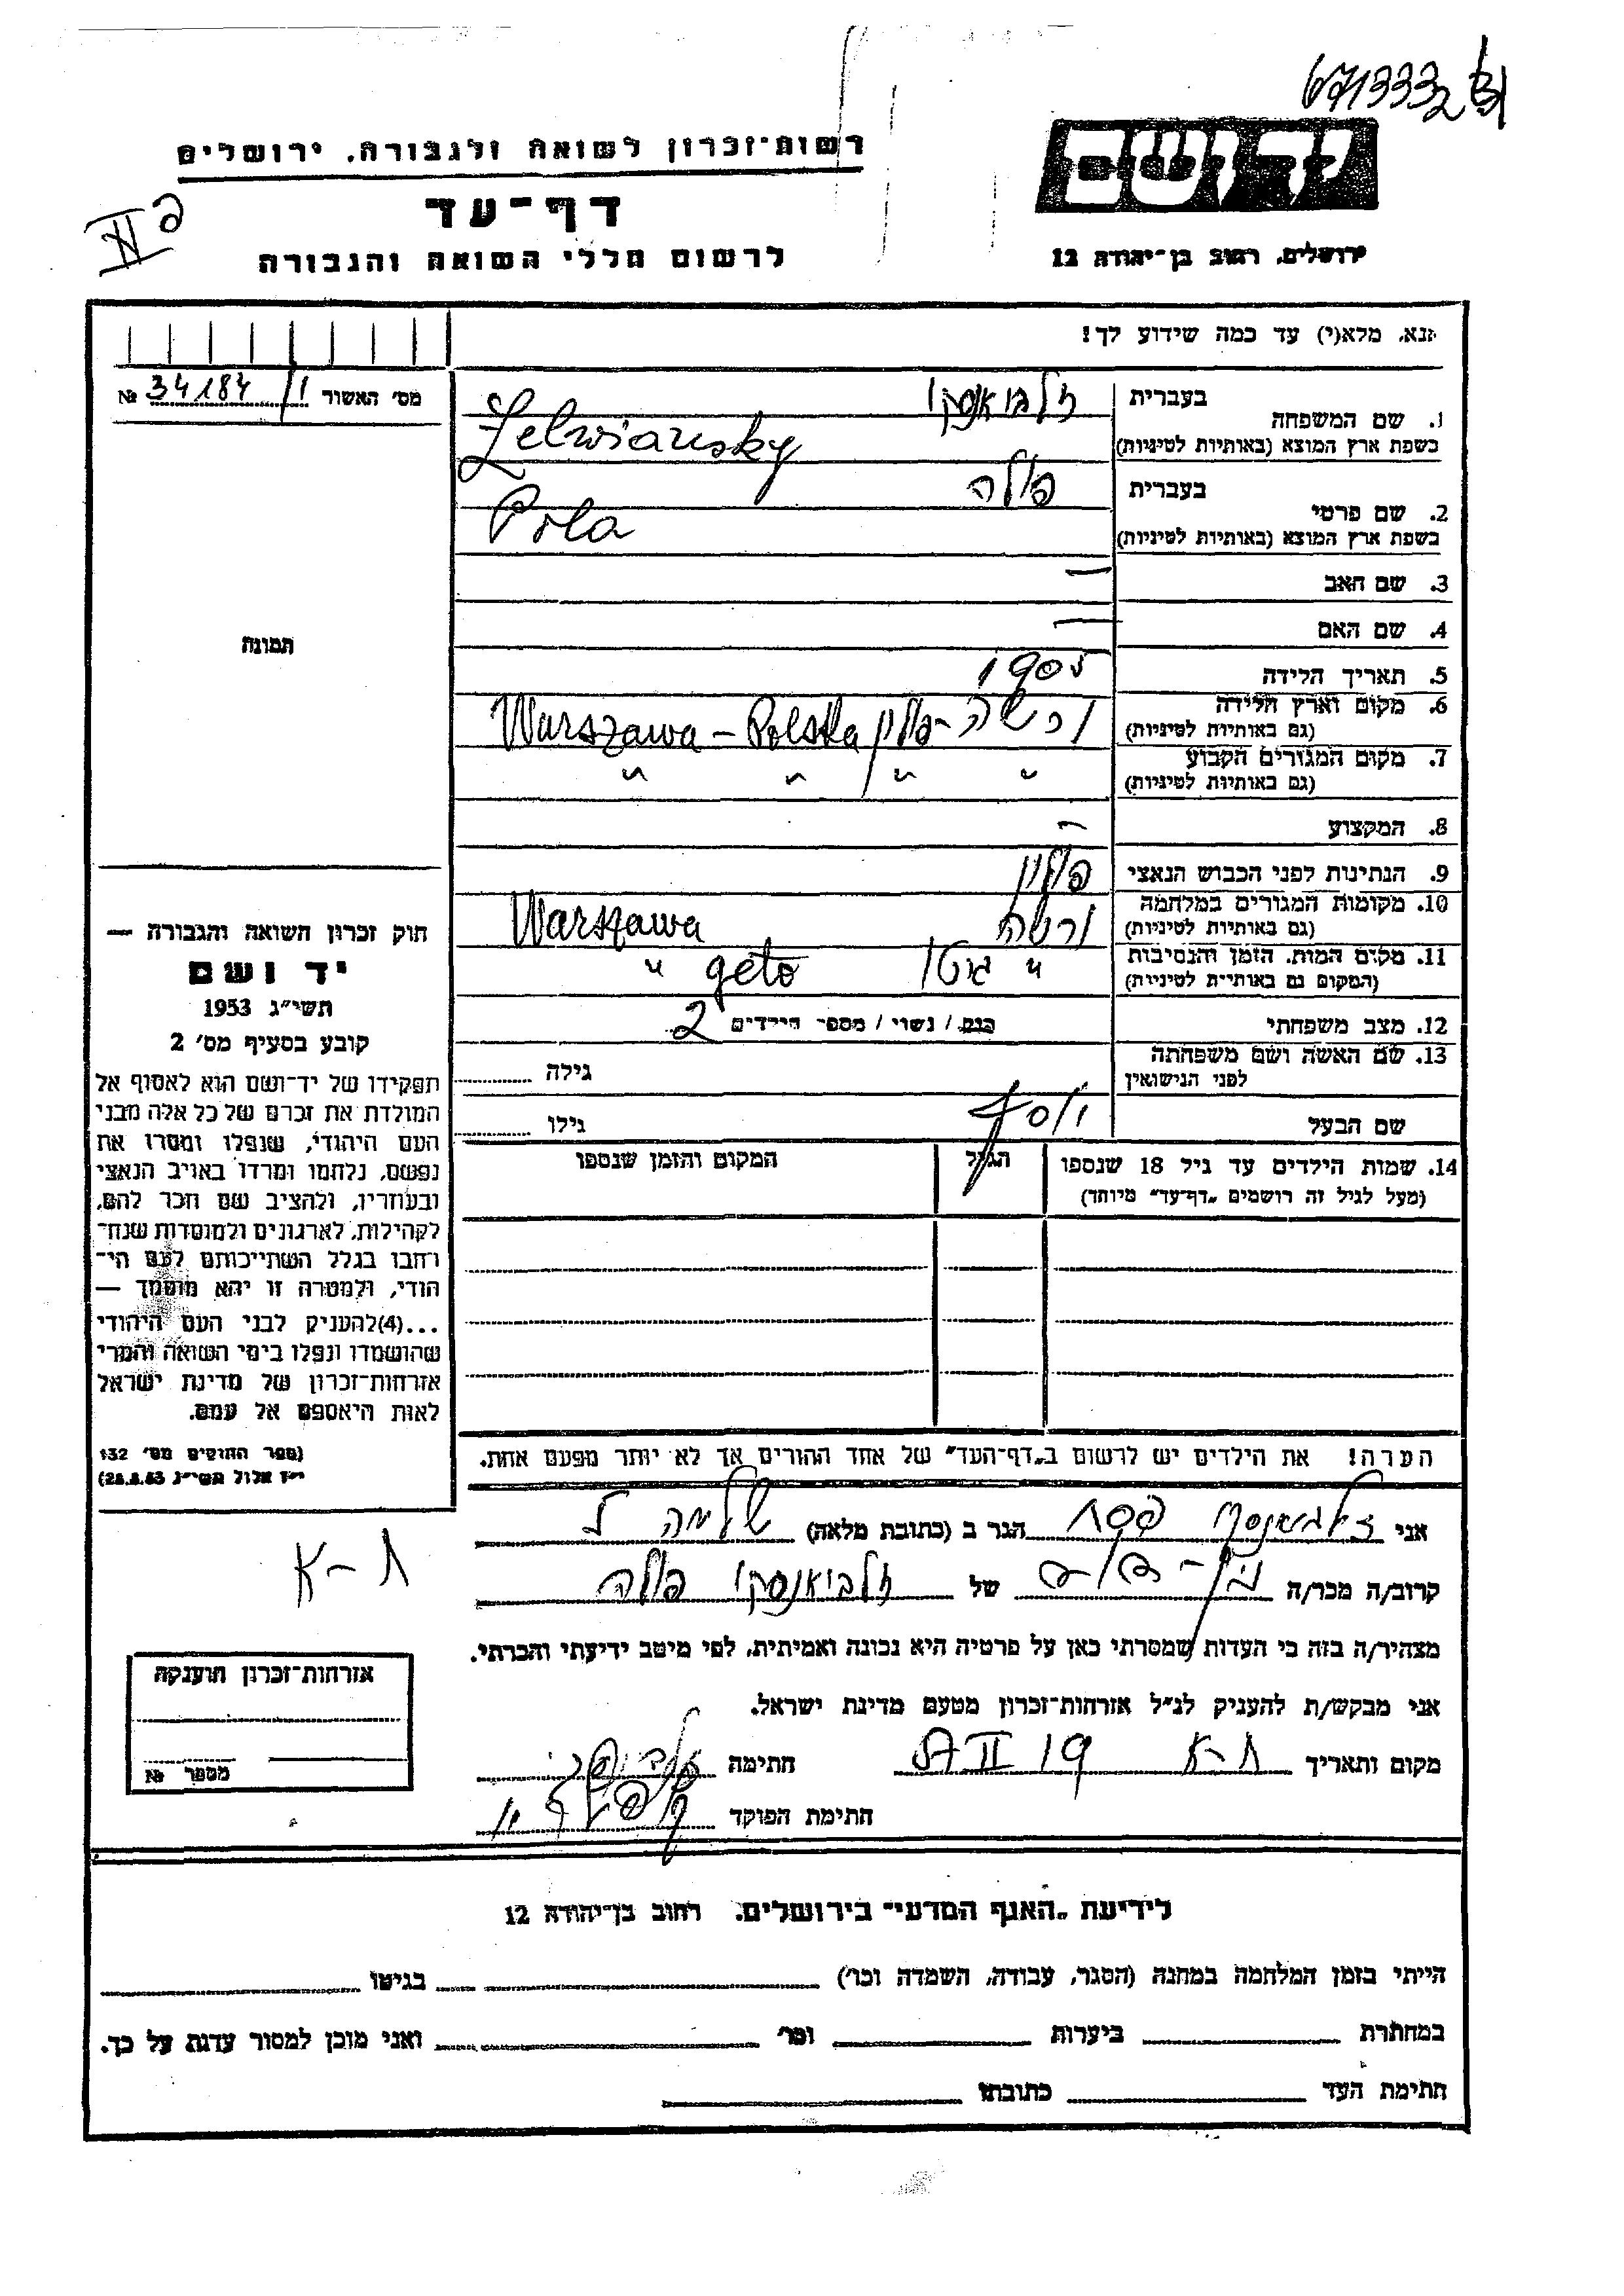 6713332
רשות-זכרון לשואה ולגבורה, ירושלים
דף-עד
לרשום חללי השואה והגבורה
יד ושם
ירושלים, רחוב בן-יהודה 12
II
נא, מלא(י) עד כמה שידוע לך!
מס' האשור 34184/1 №
תמונה
1. שם המשפחה
בעברית זלביאנסקי
בשפת ארץ המוצא (באותיות לטיניות) Zelwiansky
2. שם פרטי
בעברית פולה
בשפת ארץ המוצא (באותיות לטיניות) Pola
3. שם האב —
4. שם האם —
5. תאריך הלידה 1905
6. מקום וארץ הלידה (גם באותיות לטיניות) ורשה - פולין Warszawa - Polska
7. מקום המגורים הקבוע (גם באותיות לטיניות) " " " "
8. המקצוע —
9. הנתינות לפני הכבוש הנאצי פולין
10. מקומות המגורים במלחמה (גם באותיות לטיניות) ורשה Warszawa
11. מקום המות, הזמן והנסיבות (המקום גם באותיות לטיניות) " גיטו geto "
12. מצב משפחתי רווק / נשוי / מספר הילדים 2
13. שם האשה ושם משפחתה לפני הנישואין גילה
שם הבעל יוסף גילו
14. שמות הילדים עד גיל 18 שנספו (מעל לגיל זה רושמים "דף-עד" מיוחד) הגיל המקום והזמן שנספו
הערה! את הילדים יש לרשום ב"דף-העד" של אחד ההורים אך לא יותר מפעם אחת.
חוק זכרון השואה והגבורה —
יד ושם
תשי"ג 1953
קובע בסעיף מס' 2
תפקידו של יד-ושם הוא לאסוף אל
המולדת את זכרם של כל אלה מבני
העם היהודי, שנפלו ומסרו את
נפשם, נלחמו ומרדו באויב הנאצי
ובעוזריו, ולהציב שם וזכר להם,
לקהילות, לארגונים ולמוסדות שנח-
רבו בגלל השתייכותם לעם הי-
הודי, ולמטרה זו יהא מוסמך —
...(4)להעניק לבני העם היהודי
שהושמדו ונפלו בימי השואה והמרי
אזרחות-זכרון של מדינת ישראל
לאות היאספם אל עמם.
(ספר החוקים מס' 132
י"ז אלול תשי"ג 28.8.53)
אני זלביאנסקי פסח הגר ב (כתובת מלאה) שלמה
קרוב/ה מכר/ה של זלביאנסקי פולה
מצהיר/ה בזה כי העדות שמסרתי כאן על פרטיה היא נכונה ואמיתית, לפי מיטב ידיעתי והכרתי.
אני מבקש/ת להעניק לנ"ל אזרחות-זכרון מטעם מדינת ישראל.
מקום ותאריך ת-א 19 II חתימה
חתימת הפוקד
ת-א
אזרחות-זכרון הוענקה
מספר №
לידיעת "האגף המדעי" בירושלים, רחוב בן-יהודה 12
הייתי בזמן המלחמה במחנה (הסגר, עבודה, השמדה וכו') בגיטו
במחתרת ביערות וכו' ואני מוכן למסור עדות על כך.
חתימת העד כתובתו